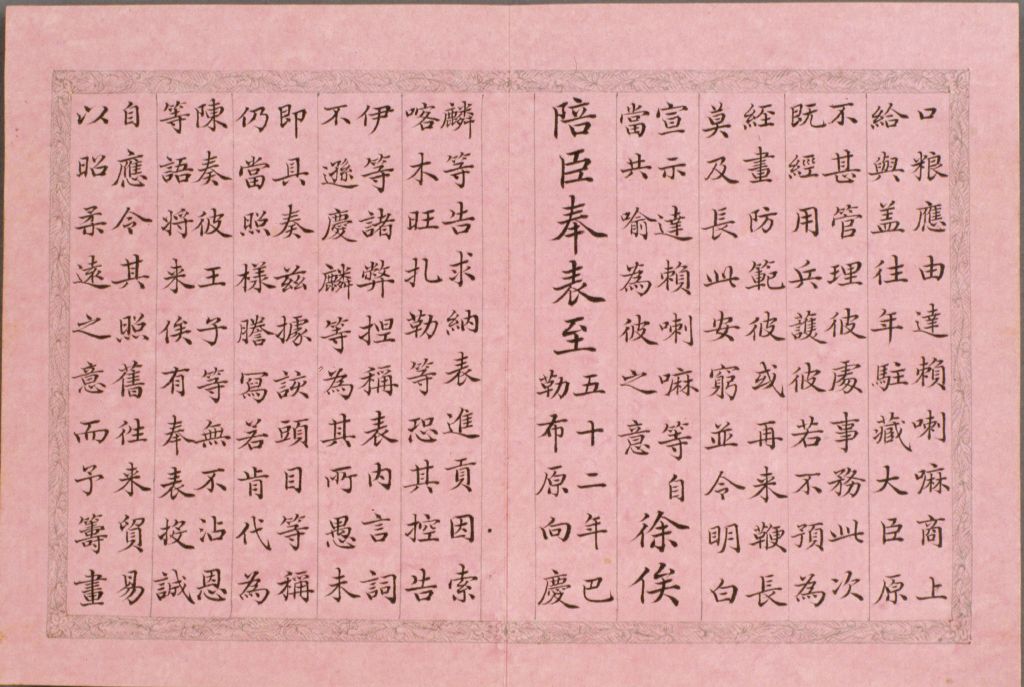 口粮應由達賴喇嘛商上
給與盖往年駐藏大臣原
不甚管理彼處事務此次
既經用兵護彼若不預為
經畫防範彼或再来鞭長
莫及長此安窮並令明白
宣示達賴喇嘛等自
當共喻為彼之意
徐俟
陪臣奉表至
五十二年巴
勒布原向慶
麟等告求納表進貢因索
喀木旺扎勒等恐其控告
伊等諸弊捏稱表內言詞
不遜慶麟等為其所愚未
即具奏兹據該頭目等稱
仍當照樣謄寫若肯代為
陳奏彼王子等無不沾恩
等語將来俟有奉表投誠
自應令其照舊往来貿易
以昭柔遠之意而予籌畫